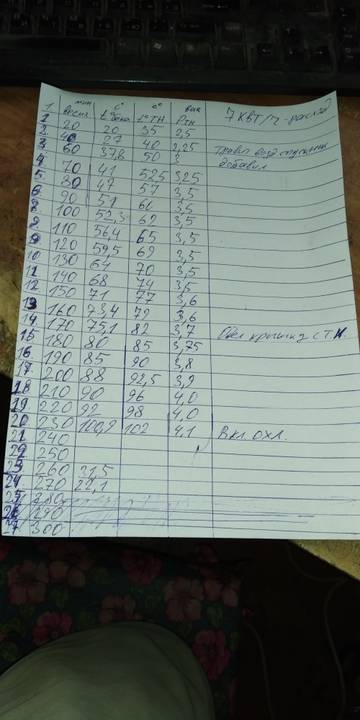 мин С° С° бак 7 КВТ/ч - расход
Время t° бака t° ТН Pтн
1 20 20 35 2,5
2 40 27 40 2,25
3 60 37,8 50 3
4 70 41 52,5 3,25
5 80 47 57 3,5
6 90 51 61 3,5
8 100 52,3 62 3,5
9 110 56,4 65 3,5
9 120 59,5 69 3,5
10 130 61 70 3,5
11 140 68 74 3,5
12 150 71 77 3,6
13 160 73,4 79 3,6
14 170 75,1 82 3,7
15 180 80 85 3,75
16 190 85 90 3,8
17 200 88 92,5 3,9
18 210 90 96 4,0
19 220 92 98 4,0
20 230 100,9 102 4,1 Вкл. охл.
21 240
250
23 260 31,5
24 270 22,1
25 280
26 290
27 300